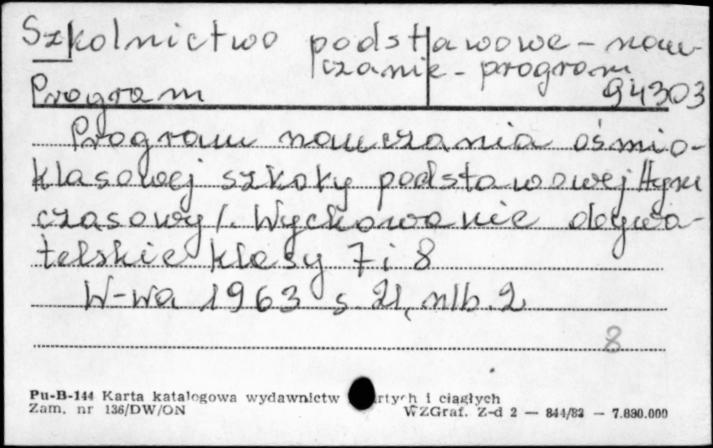 Szkolnictwo podstawowe - nau-
czanie - program
Program 94303
Program nauczania ośmio-
klasowej szkoły podstawowej /tym
czasowy/. Wychowanie obywa-
telskie klasy 7 i 8
W-wa 1963 s. 21, nlb. 2
8
Pu-B-144 Karta katalogowa wydawnictw rtych i ciągłych
Zam. nr 136/DW/ON WZGraf. Z-d 2 — 844/82 — 7.890.000